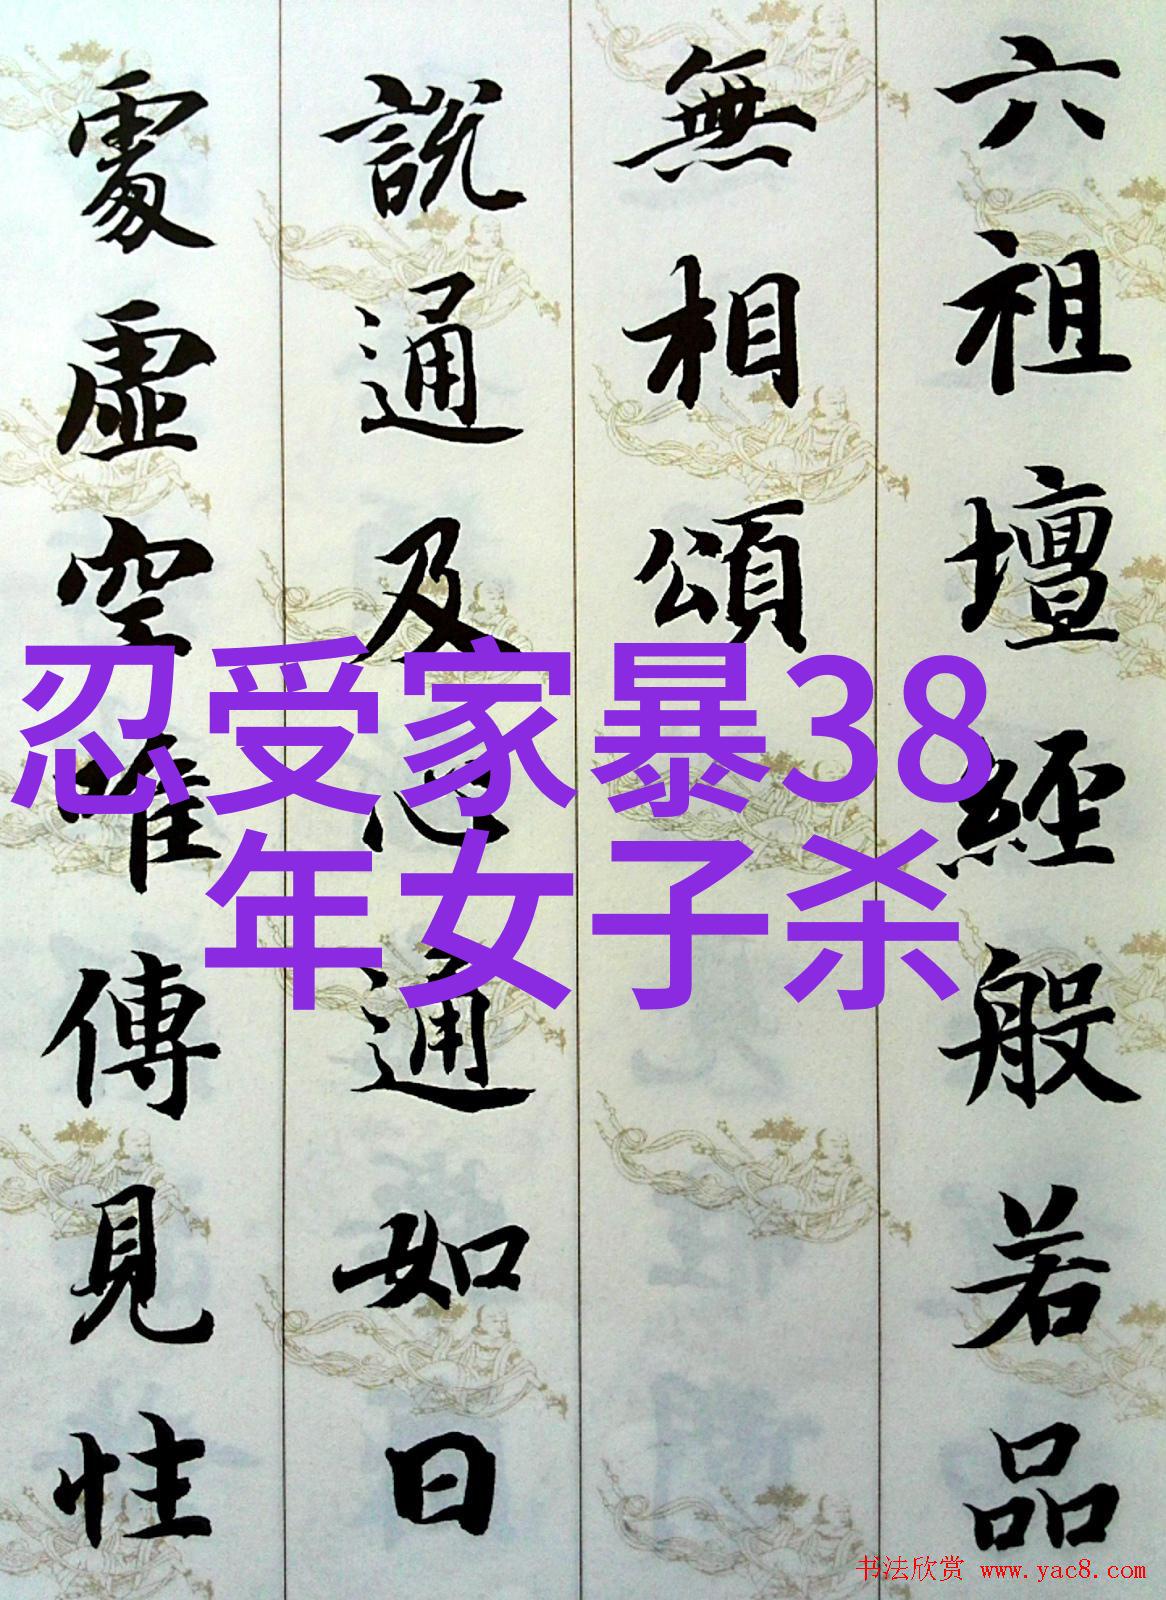 六祖壇經般若品
無相頌
說通及心通如日
處虛空唯傳見性
忍受家暴38
年女子杀
书法欣赏 www.yac8.com